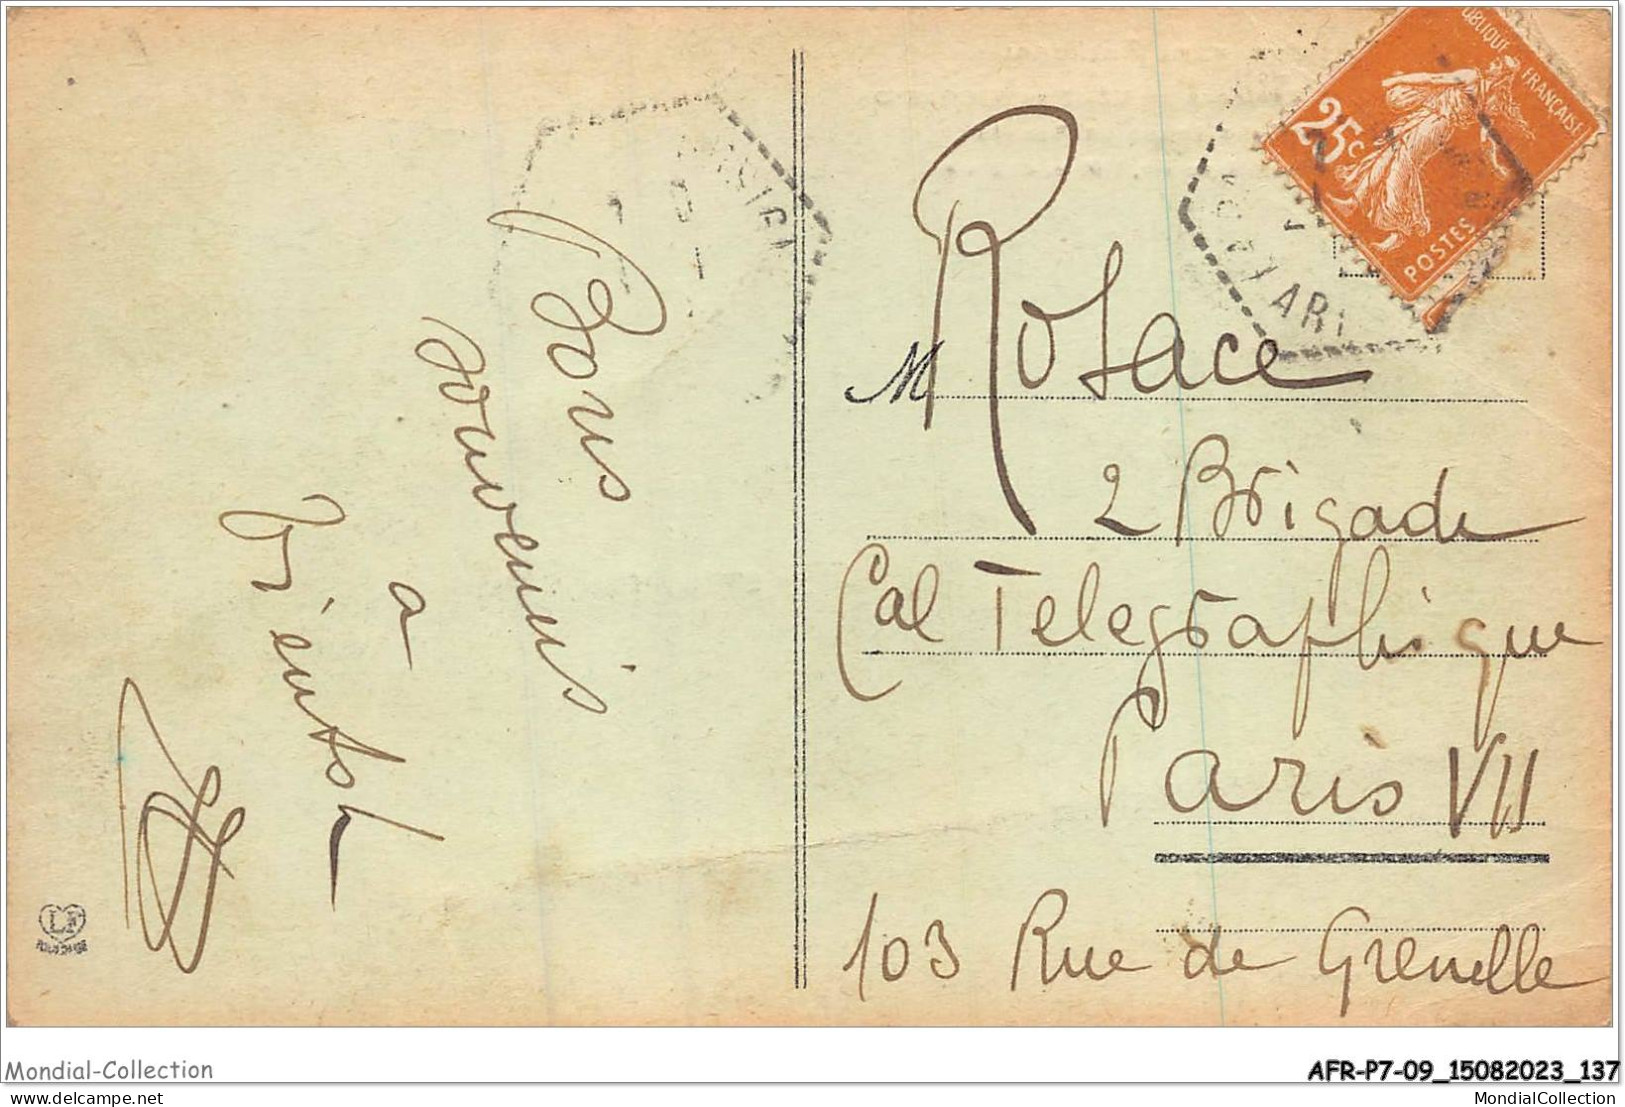 Bons
souvenirs
a
bientôt
M Rosace
2 Brigade
Cal Telegraphique
Paris VII
103 Rue de Grenelle
RÉPUBLIQUE FRANÇAISE
25c
POSTES
LF
Mondial-Collection
AFR-P7-09_15082023_137
delcampe.net
MondialCollection